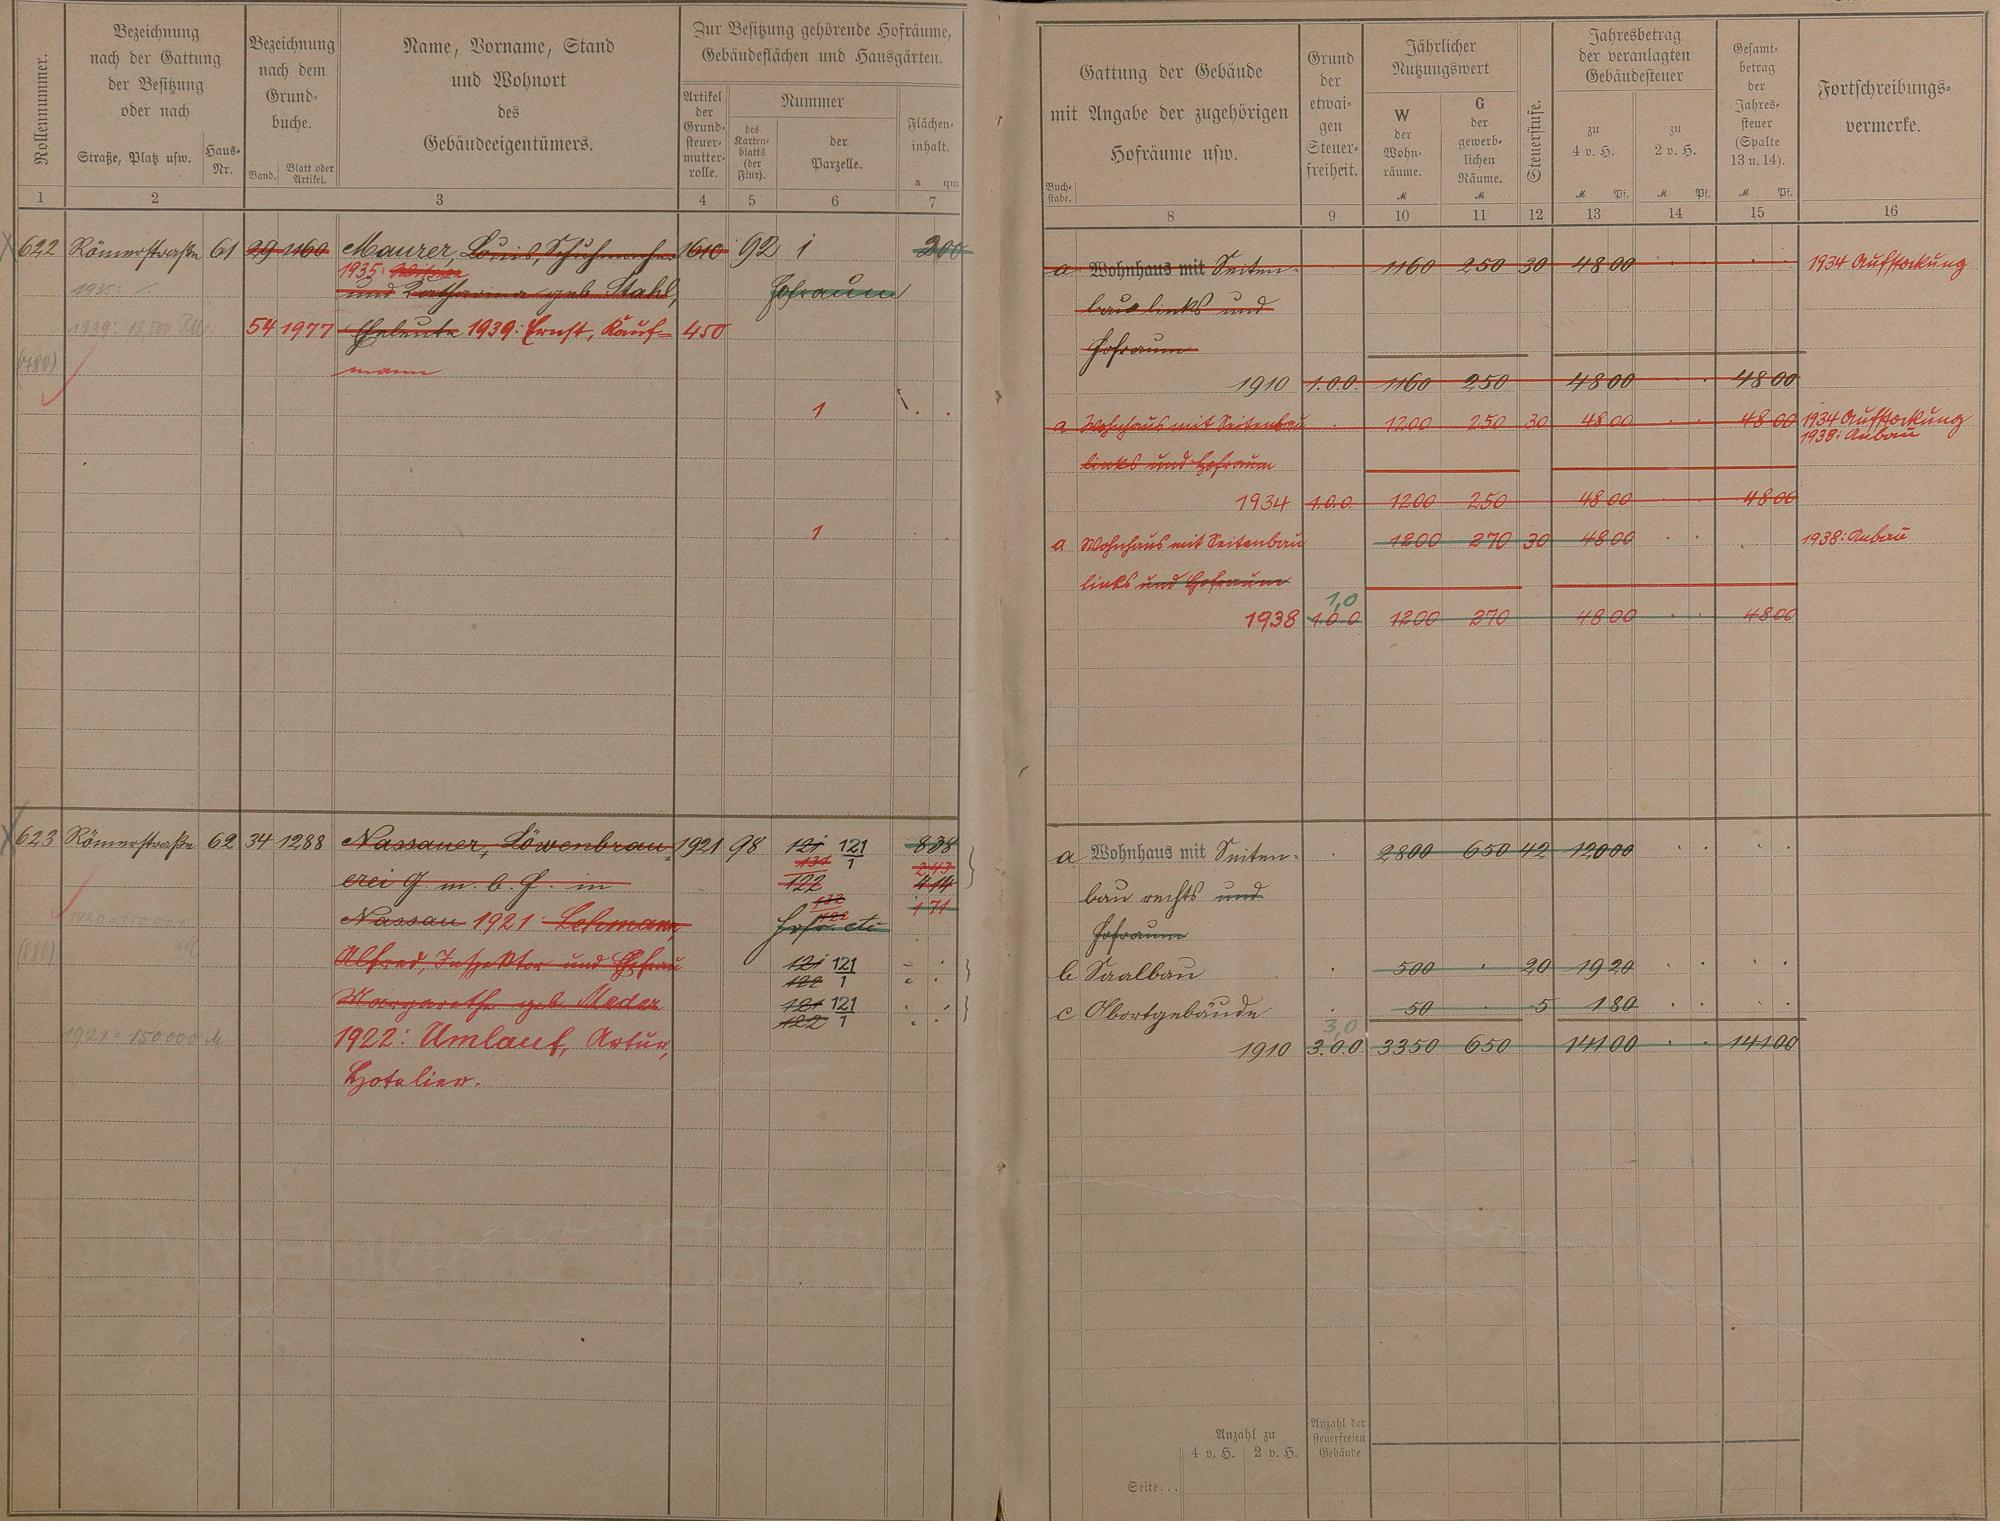 Rollennummer.
Bezeichnung
nach der Gattung
der Besitzung
oder nach
Straße, Platz usw.
Haus-
Nr.
Bezeichnung
nach dem
Grund-
buche.
Band.
Blatt oder
Artikel.
Name, Vorname, Stand
und Wohnort
des
Gebäudeeigentümers.
Zur Besitzung gehörende Hofräume,
Gebäudeflächen und Hausgärten.
Artikel
der
Grund-
steuer-
mutter-
rolle.
Nummer
des
Karten-
blatts
(der
Flur).
der
Parzelle.
Flächen-
inhalt.
a qm
1 2 3 4 5 6 7
622 Römerstraße 61 29 1160 Maurer, Louis, Schuhmacher 1610 92 1 200
1935: Witwe
1935: /.
und Katharina geb. Stahl, Hofraum
1939: 18,500 RM. 54 1977 Eheleute 1939: Ernst, Kauf= 450
(780)
mann
1
1
623 Römerstraße 62 34 1288 Nassauer, Löwenbrau- 1921 98 121 121/1 838
131 243
erei G. m. b. H. in 122 414
132
122 171
1920=150000
M
Nassau 1921: Lehmann, Hofr. etc
(880)
Alfred, Inspektor und Ehefrau 121 121/1
122
Margarethe geb. Meder 121 121/1
122
1921 = 150.000 M 1922: Umlauf, Artur,
Hotelier.
Gattung der Gebäude
mit Angabe der zugehörigen
Hofräume usw.
Buch-
stabe.
Grund
der
etwai-
gen
Steuer-
freiheit.
Jährlicher
Nutzungswert
W
der
Wohn-
räume.
M
G
der
gewerb-
lichen
Räume.
M
Steuerstufe.
Jahresbetrag
der veranlagten
Gebäudesteuer
zu
4 v. H.
M Pf.
zu
2 v. H.
M Pf.
Gesamt-
betrag
der
Jahres-
steuer
(Spalte
13 u. 14).
M Pf.
Fortschreibungs-
vermerke.
8 9 10 11 12 13 14 15 16
a Wohnhaus mit Seiten- 1160 250 30 48 00 1934 Aufstockung
bau links und
Hofraum
1910 1.0.0. 1160 250 48 00 48 00
a Wohnhaus mit Seitenbau 1200 250 30 48 00 48 00 1934 Aufstockung
1938: Anbau
links und Hofraum
1934 1.0.0. 1200 250 48 00 48 00
a Wohnhaus mit Seitenbau 1200 270 30 48 00 1938: Anbau
links und Hofraum
1,0
1938 1.0.0 1200 270 48 00 48 00
a Wohnhaus mit Seiten- 2800 650 42 120 00
bau rechts und
Hofraum
b Saalbau 500 20 19 20
c Abortgebäude 50 5 1 80
3,0
1910 3.0.0. 3350 650 141 00 141 00
Anzahl zu
4 v. H. 2 v. H.
Anzahl der
steuerfreien
Gebäude
Seite...